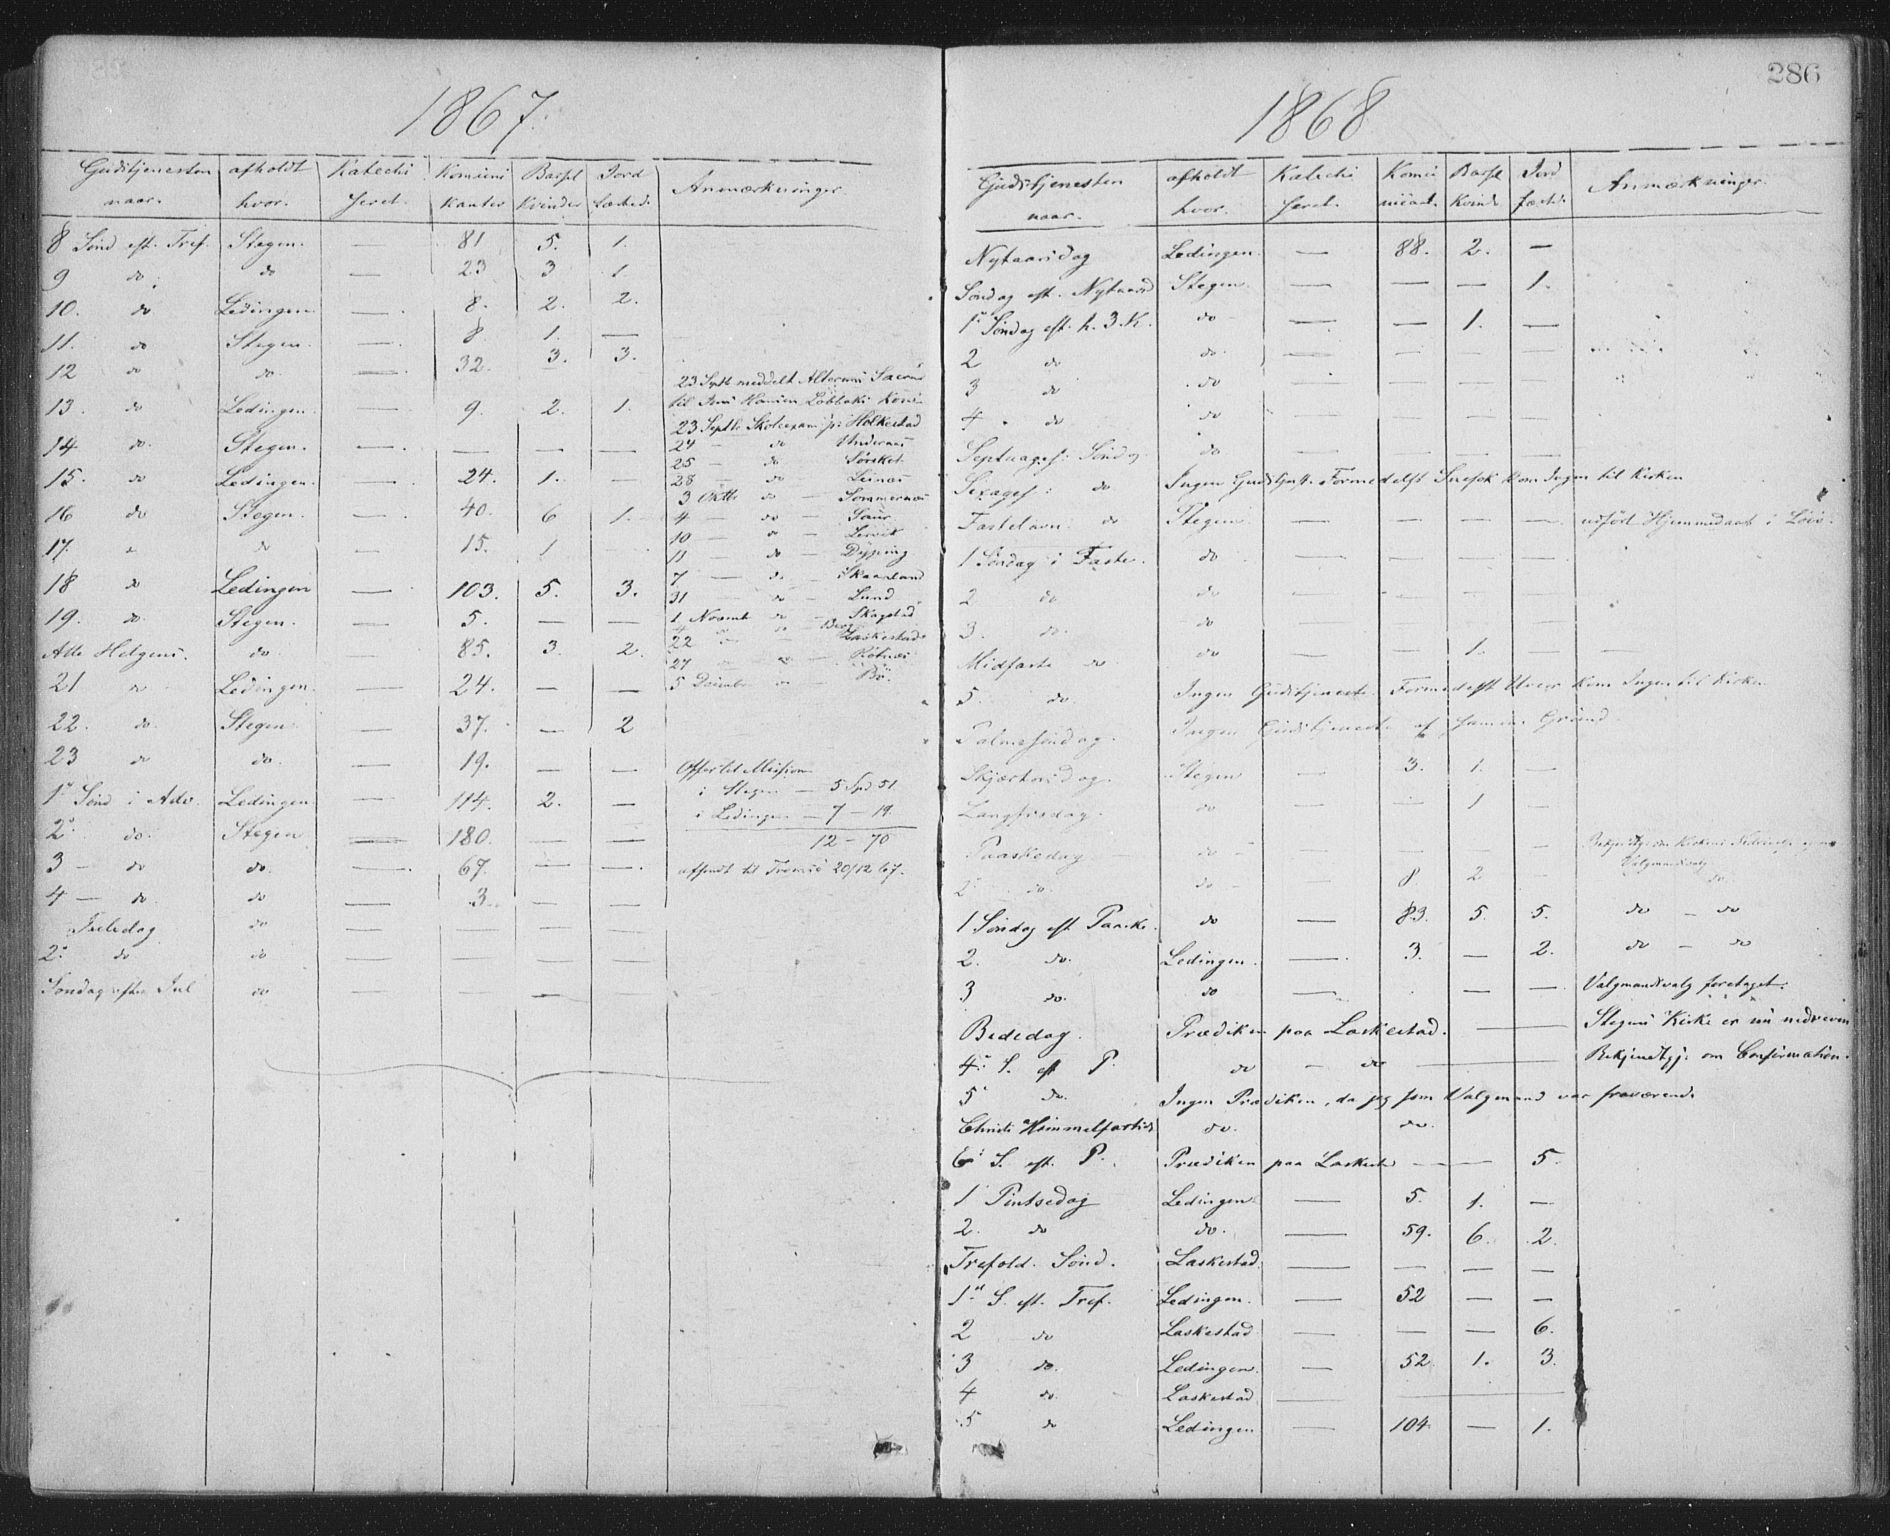 286
1867.
Gudstjenesten afholdt Katechi Komuni Barsel Jord Anmærkninger.
naar. hvor. seret. kanter Kvinder fæsted.
8 Sønd eft. Tref. Stegen. — 81 5. 1.
9 do. do — 23 3 1.
10. do Ledingen. — 8. 2. 2.
11. do Stegen. — 8 1. —
12 do do. — 32. 3. 3.
23 Septb meddelt Alterens
13. do Ledingen. — 9. 2. 1.
23 Septb Skoleexam p: Holkestad
14 do. Stegen. — — — —
24 — do
25 — do Sørsket
15. do Ledingen. — 24. 1. —
28 — do Leines
3 Oktbr do — Sommernes
16 do Stegen. — 40. 6 1.
4 — do —
10 — do — Lervik
17. do — 15. 1 —
11 — do — Dypping
7 — do — Skaanland
18 do Ledingen — 103. 5. 3.
31 do — Lund
19. do. Stegen. — 5. — —
1 Novemb do — Skagstad
Berg
22 — Laskestad
Alle Helgens. do. — 85. 3. 2.
27 — Røtnes
21 Ledingen. — 24. — —
5 Decimber do — Bø.
22. do. Stegen. — 37. — 2
23 do do. — 19. — —
Offer til Mission
i Stegen — 5 Spd 51.
1ste Sønd i Adv. Ledingen — 114. 2. —
i Ledingen — 7 — 19.
2. do. Stegen — 180. — —
12 — 70
3 — do do. — 67. — —
afsendt til Tromsø 20/12 67.
4 — do. do — 3. — —
Juledag do — — — —
2: do do — — — —
Søndag efter Jul do — — — —
1868
Gudstjenesten afholdt Katechi Komu Barse Jord Anmærkninger.
naar. hvor. seret. nicant. Kvind fæsted.
Nytaarsdag Ledingen. — 88. 2. —
Søndag eft. Nytaard Stegen. — — — 1.
1ste Søndag eft. h. 3. K. do — — — 1. —
2 do do. — — — —
3 do do — — — —
4 do do — — — —
Septuages: Søndag do
Sexages: do Ingen Gudstjen. Formedelst Snefok kom Ingen til Kirken
Fastelavn do Stegen — — — —
1 Søndag i Faste. do — — — —
2 do. do — — — —
3. do. do — — — —
Midfaste do do — — 1. —
5. do. Ingen Gudstjeneste. Formedelst Uveir kom Ingen til Kirken
Palmesøndag. Ingen Gudstjeneste af samme Grund.
Skjærtorsdag. Stegen — 3. 1. —
Langfredag. do — — 1 —
Paaskedag do — — — — —
Valgmandsvalg
2: do. do — — 8. 2 — do.
1 Søndag eft Paaske. do — 83. 5. 5. do — do
2. do. Ledingen. — 3. — 2. do — do
3 do. do — — — Valgmandsvalg foretaget.
Bededag. Prædiken paa Laskestad. — Stegens Kirke er nu nedreven
4: S. eft P. do — do — Bekjendtgj. om Confirmation.
5: do. Ingen Prædiken, da jeg som Valgmand var fraværende
Christi Himmelfartsd. do. do.
6: S. eft. P. Prædiken paa Laskestd — 5.
1 Pintsedag Ledingen. — 5. 1. —
2. do do. — 59. 6. 2.
Trefold. Sønd. Laskestad. — — — —
1ste S. eft. Tref. Ledingen. — 52 — —
2 do Laskestad — — — 6.
3 do. Ledingen. — 52. 1. 3.
4 do. Laskestad —
5 do Ledingen — 104 — 1.